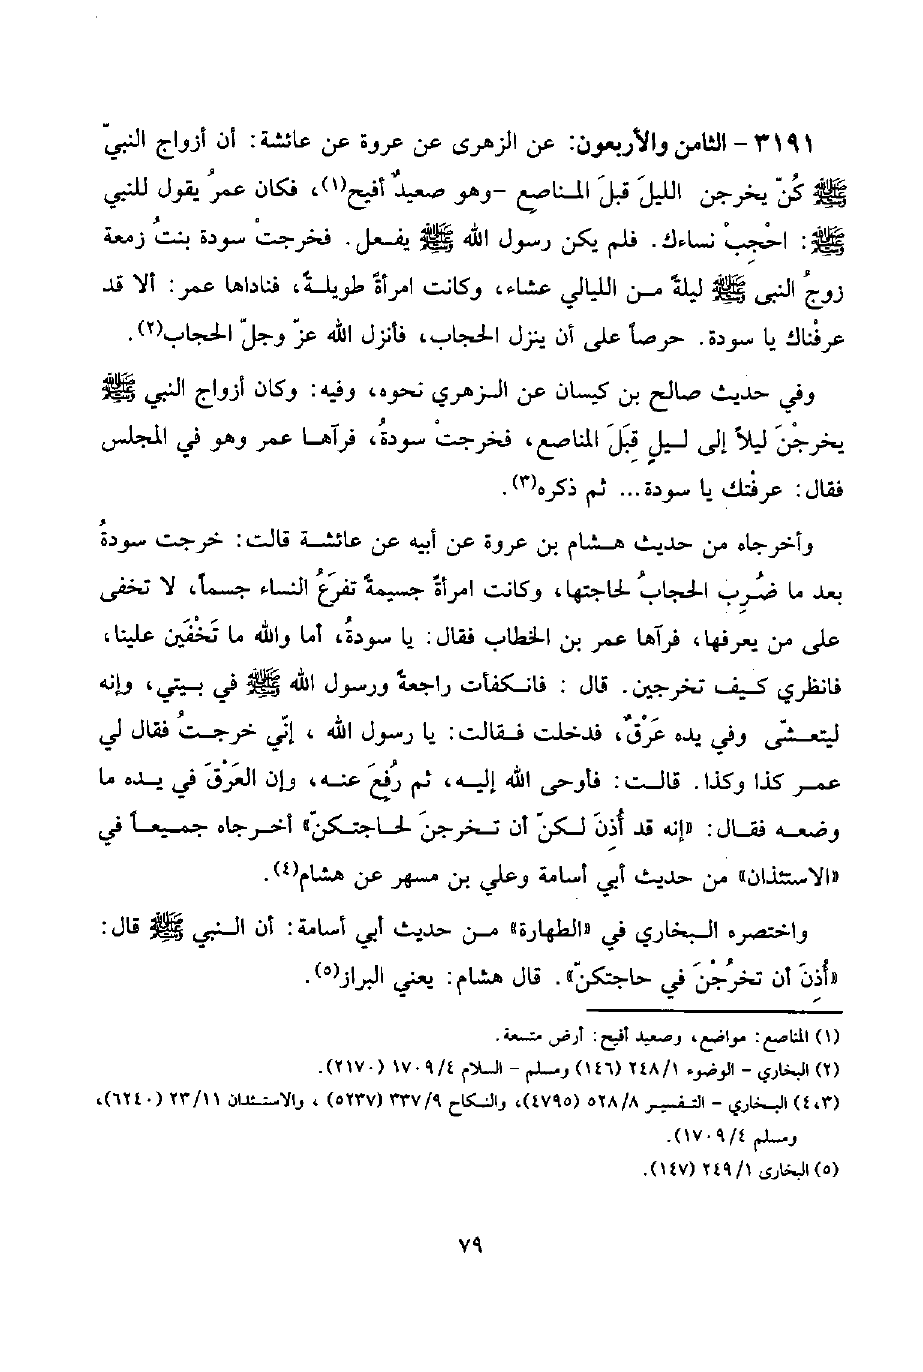 ٣١٩١ - الثامن والأربعون: عن الزهرى عن عروة عن عائشة: أن أزواج النبيّ
ﷺ كُنّ يخرجن الليلَ قبلَ المناصع -وهو صعيدٌ أفيح(١)، فكان عمرُ يقول للنبي
ﷺ: احْجِبْ نساءك. فلم يكن رسول الله ﷺ يفعل. فخرجتْ سودة بنتُ زمعة
زوجُ النبى ﷺ ليلةً من الليالي عشاء، وكانت امرأةً طويلةً، فناداها عمر: ألا قد
عرفْناك يا سودة. حرصاً على أن ينزل الحجاب، فأنزل الله عزّ وجلّ الحجاب(٢).
وفي حديث صالح بن كيسان عن الزهري نحوه، وفيه: وكان أزواج النبي ﷺ
يخرجْنَ ليلاً إلى ليلٍ قِبَلَ المناصع، فخرجتْ سودةُ، فرآها عمر وهو في المجلس
فقال: عرفْتك يا سودة... ثم ذكره(٣).
وأخرجاه من حديث هشام بن عروة عن أبيه عن عائشة قالت: خرجت سودةُ
بعد ما ضُرِب الحجابُ لحاجتها، وكانت امرأةً جسيمةً تفرَعُ النساء جسماً، لا تخفى
على من يعرفها، فرآها عمر بن الخطاب فقال: يا سودةُ، أما والله ما تَخْفَين علينا،
فانظري كيف تخرجين. قال : فانكفأت راجعةً ورسول الله ﷺ في بيتي، وإنه
ليتعشّى وفي يده عَرْقٌ، فدخلت فقالت: يا رسول الله ، إنّي خرجتُ فقال لي
عمر كذا وكذا. قالت: فأوحى الله إليه، ثم رُفعَ عنه، وإن العَرْقَ في يده ما
وضعه فقال: «إنه قد أُذِنَ لكنّ أن تخرجنَ لحاجتكنّ» أخرجاه جميعاً في
«الاستئذان» من حديث أبي أسامة وعلي بن مسهر عن هشام(٤).
واختصره البخاري في «الطهارة» من حديث أبي أسامة: أن النبي ﷺ قال:
«أُذِنَ أن تخرُجْنَ في حاجتكنّ». قال هشام: يعني البراز(٥).
(١) المناصع: مواضع، وصعيد أفيح: أرض متسعة.
(٢) البخاري - الوضوء ٢٤٨/١ (١٤٦) ومسلم - السلام ١٧٠٩/٤ (٢١٧٠).
(٤،٣) البخاري - التفسير ٥٢٨/٨ (٤٧٩٥)، والنكاح ٣٣٧/٩ (٥٢٣٧) ، والاستئذان ٢٣/١١ (٦٢٤٠)،
ومسلم ١٧٠٩/٤).
(٥) البخارى ٢٤٩/١ (١٤٧).
٧٩